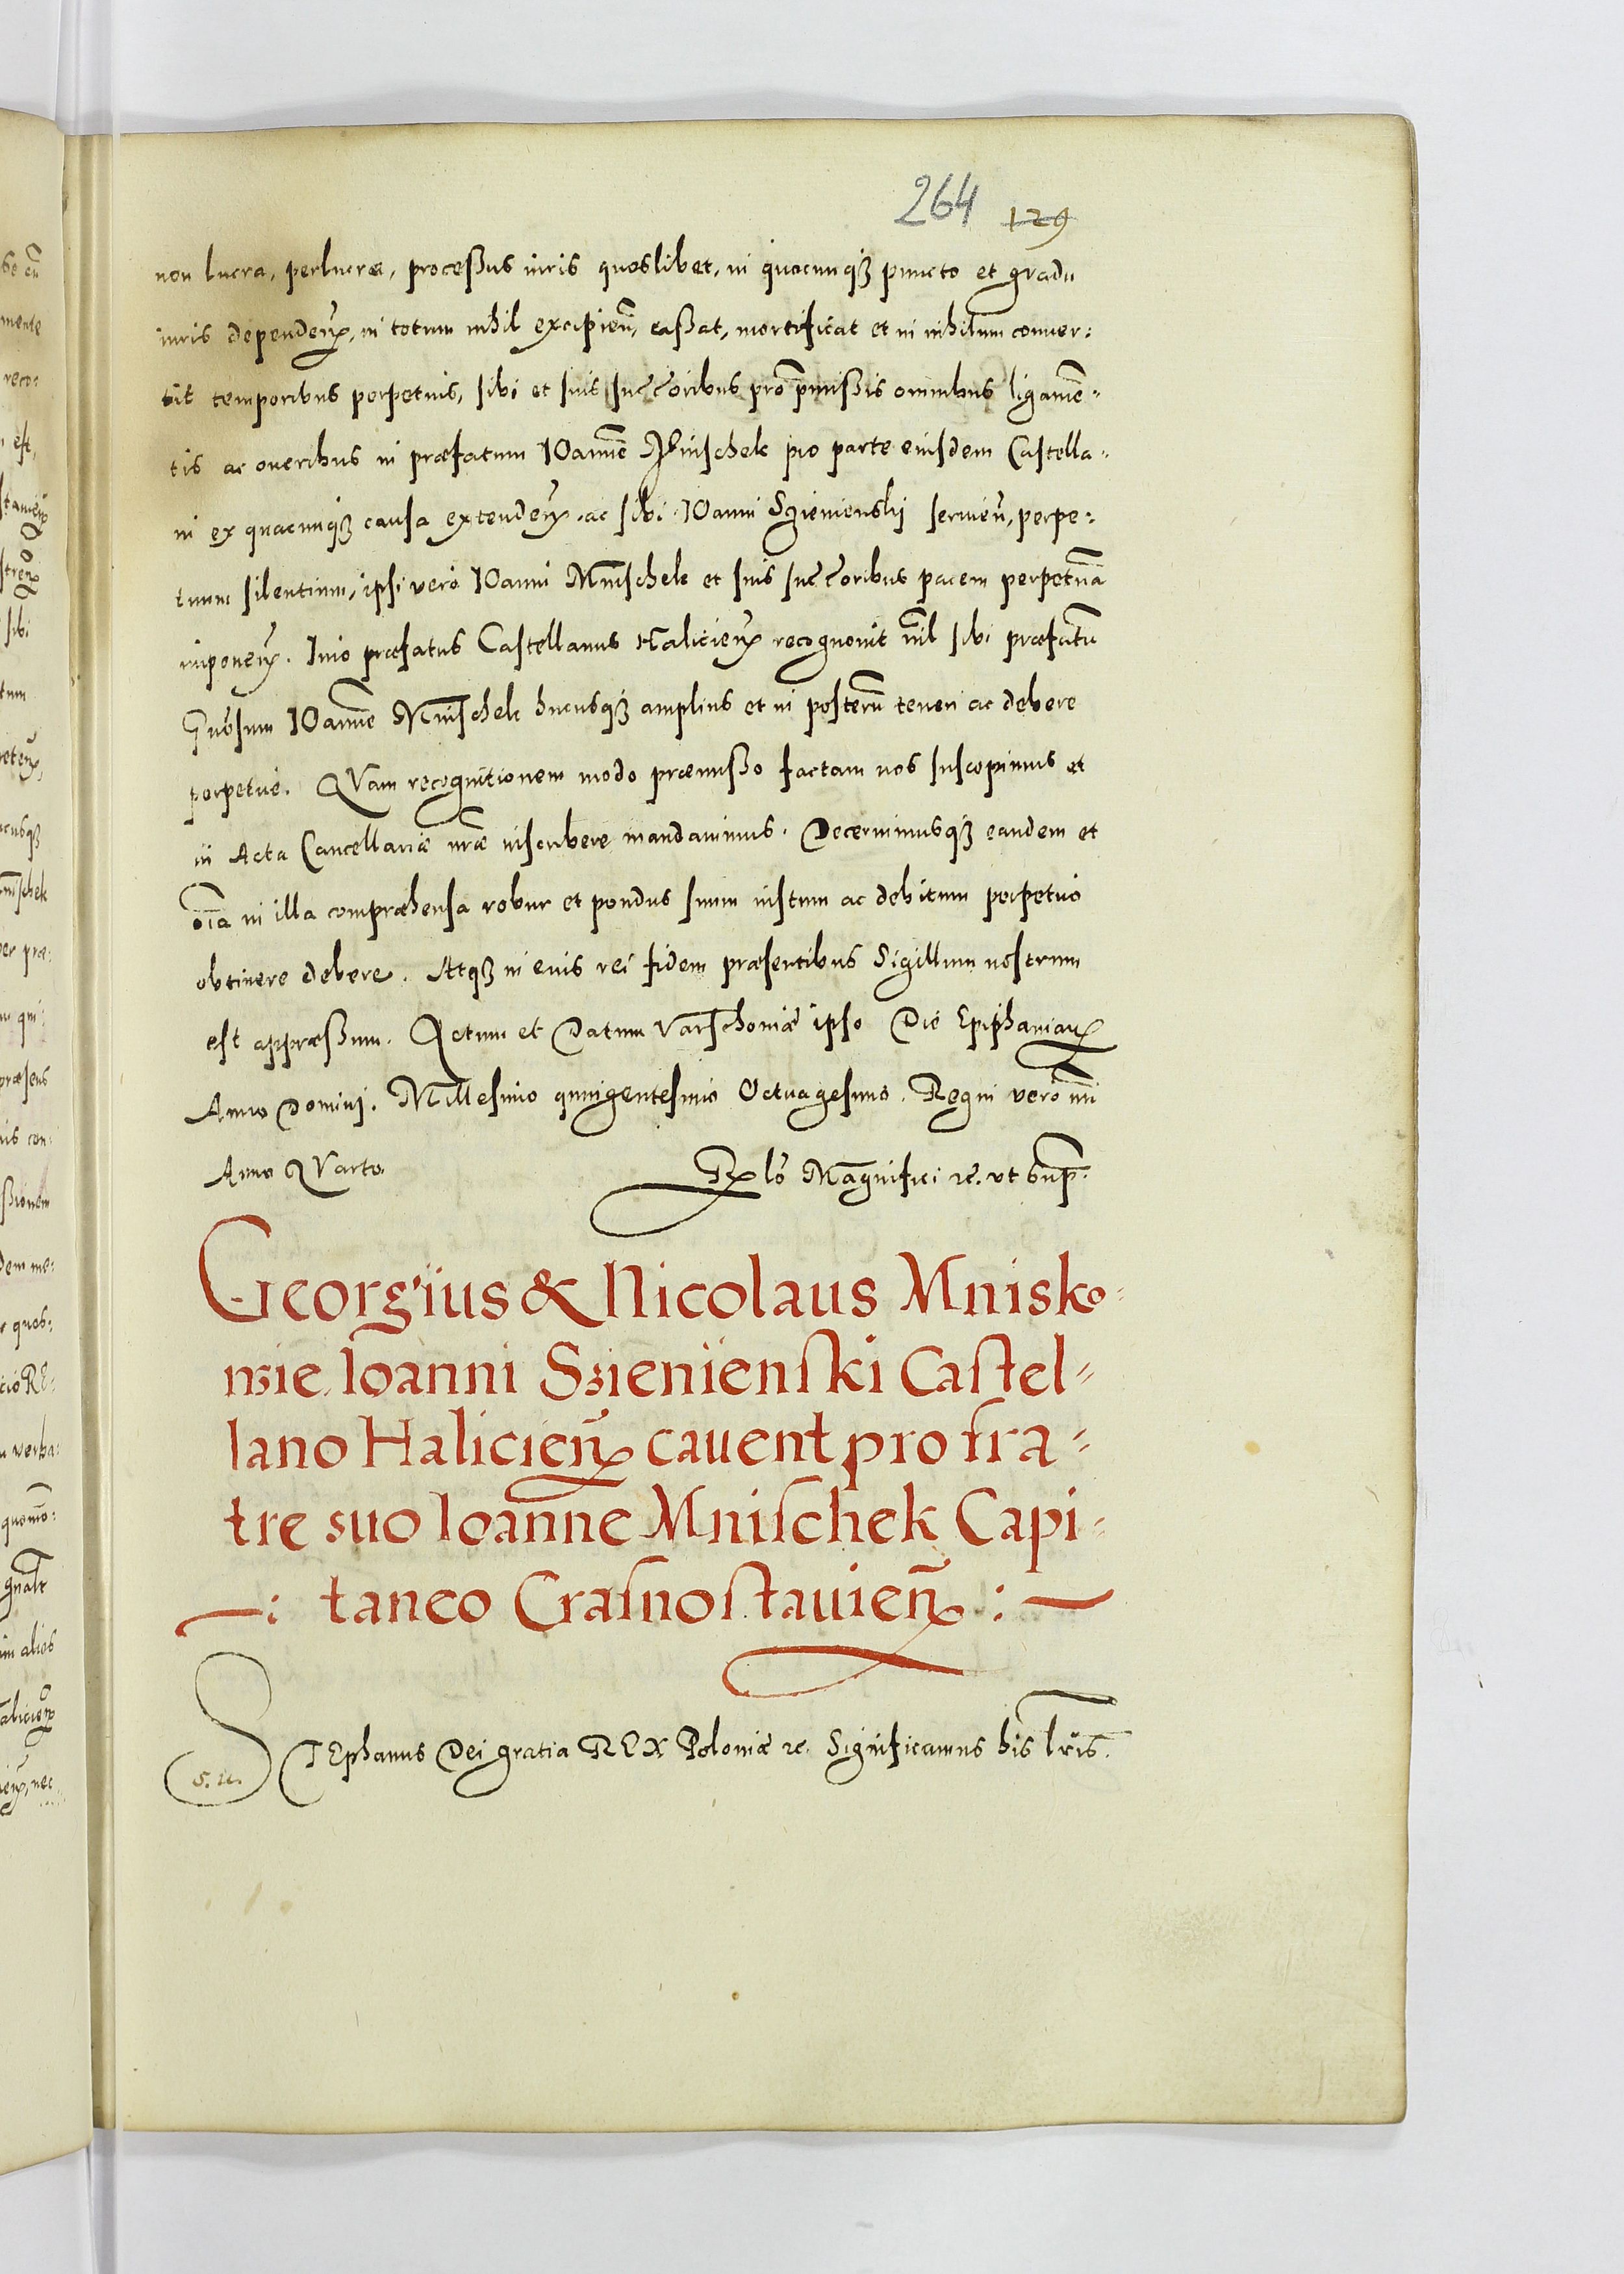 264 129
non lucra, perlucra, processus iuris quoslibet, in quocunqȝ puncto et gradu
iuris dependeñ, in totum nihil excipieñ, cassat, mortificat et in nihilum conuer:
tit temporibus perpetuis, sibi et suis succ̃oribus pro p̃missis omnibus ligamẽ-
tis ac oneribus in præfatum IOannẽ Mnischek pro parte eiusdem Castella-
ni ex quacunqȝ causa extendeñ. ac sibi IOanni Szienienskj sermieñ, perpe:
tuum silentium, ipsi verò IOanni Mnischek et suis succ̃oribus pacem perpetuã
imponeñ. Imo præfatus Castellanus Halicieñ recognouit nĩl sibi præfatũ
Gn̄osum IOannẽ Mnischek hucusqȝ amplius et in posterũ teneri ac debere
perpetuè. QVam recognitionem modo præmisso factam nos suscepimus et
in Acta Cancellariæ nræ inscribere mandauimus. Decernimusqȝ eandem et
oĩa in illa compræhensa robur et pondus suum iustum ac debitum perpetuò
obtinere debere. Atqȝ in euis rei fidem præsentibus Sigillum nostrum
est appræssum. Actum et Datum Varschoniæ ipso Die Epiphaniaꝝ
Anno Dominj. Millesimo quingentesimo Octuagesimo. Regni verò nrĩ
Anno QVarto.
Rlõ Magnifici ꝛc. vt Sup.
Georgius & Nicolaus Mnisko-
wie Ioanni Szienienski Castel-
lano Halicieñ cauent pro fra-
tre suo Ioanne Mnischek Capi-
: taneo Crasnostauieñ :
STEphanus Dei gratia REX Poloniæ ꝛc. Significamus his lr̃is.